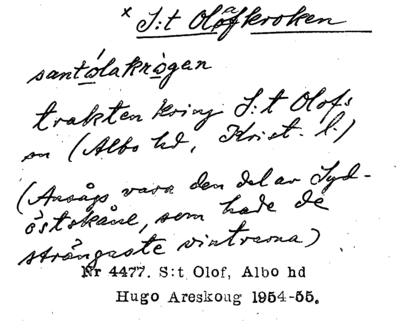 x S:t Olofkroken
santólakrògan
trakten kring S:t Olofs
sn (Albo hd, Krist. l.)
(Ansågs vara den del av Syd-
östskåne, som hade de
strängaste vintrarna)
Nr 4477. S:t Olof, Albo hd
Hugo Areskoug 1954-55.